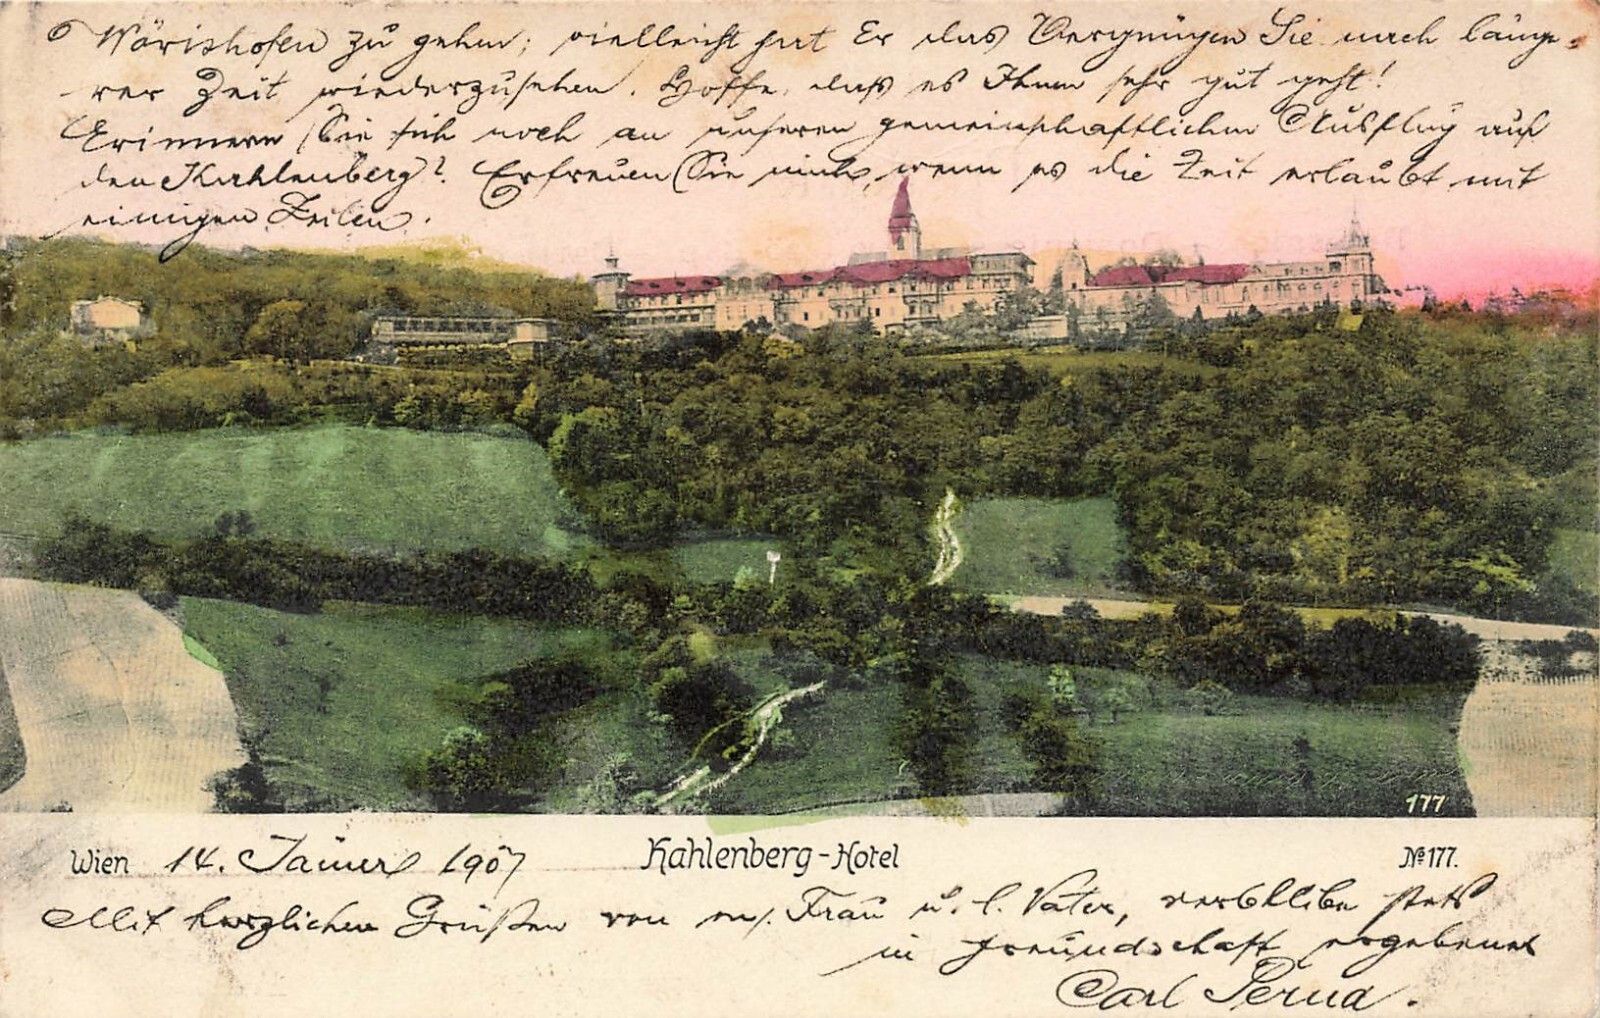 Wörishofen zu gehen; vielleicht hat Er das Vergnügen Sie nach länge-
rer Zeit wiederzusehen. Hoffe, daß es Ihnen sehr gut geht!
Erinnern Sie sich noch an unseren gemeinschaftlichen Ausflug auf
den Kahlenberg? Erfreuen Sie mich, wenn es die Zeit erlaubt mit
einigen Zeilen.
177
Wien 14. Jänner 1907 Kahlenberg-Hotel No 177.
Mit herzlichen Grüßen von m/. Frau u. l. Vater, verbleibe stets
in Freundschaft ergebener
Carl